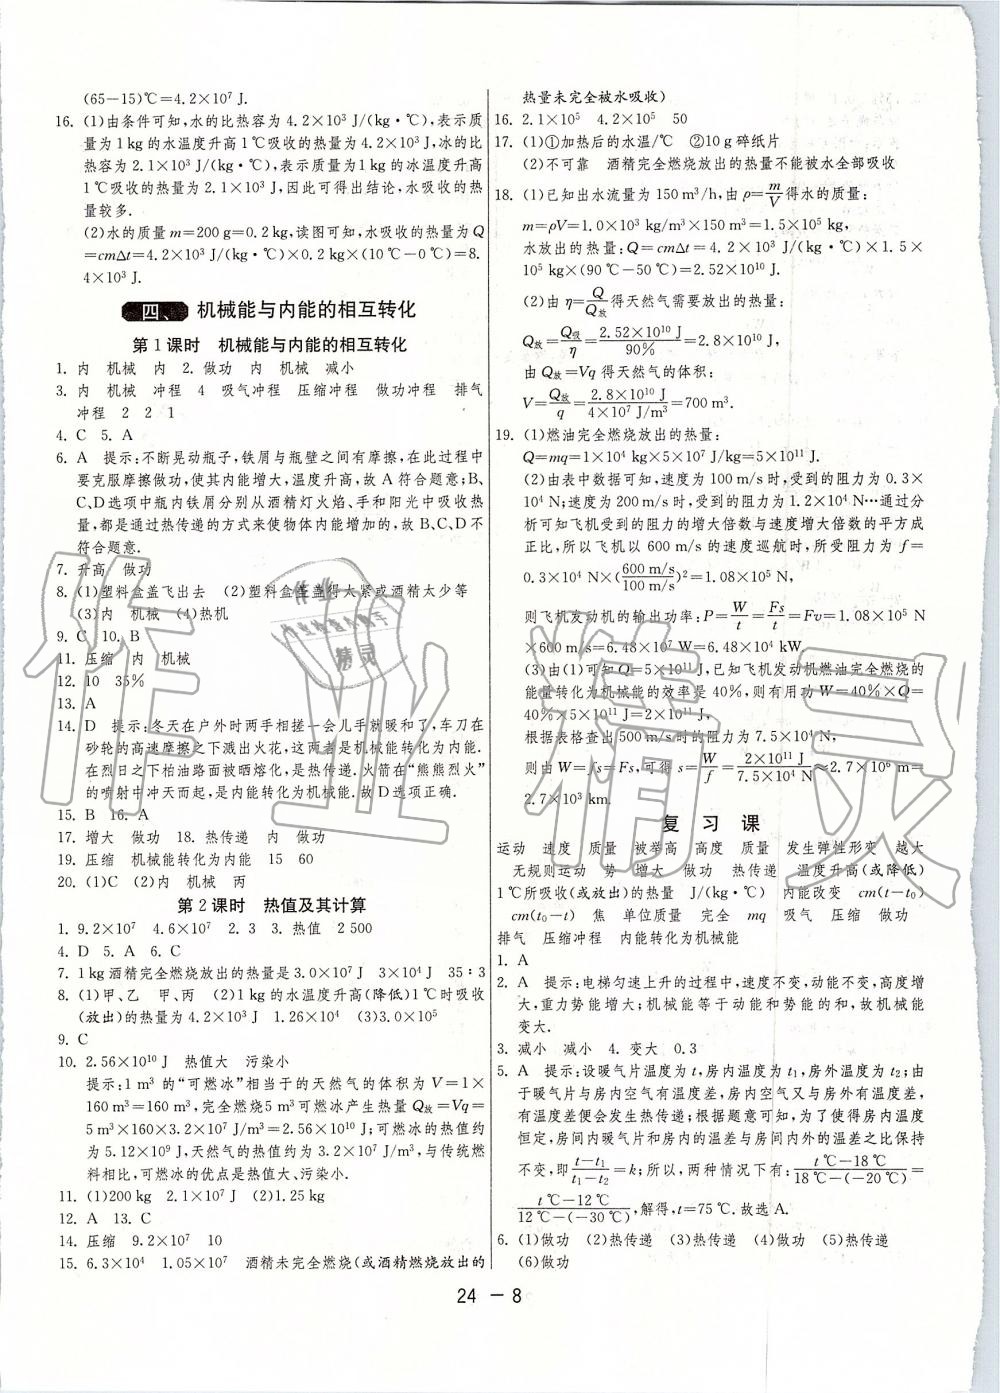 (65－15)℃＝4.2×10⁷ J.
16. (1)由条件可知,水的比热容为4.2×10³ J/(kg·℃),表示质
量为1 kg的水温度升高1℃吸收的热量为4.2×10³ J,冰的比
热容为2.1×10³ J/(kg·℃),表示质量为1 kg的冰温度升高
1℃吸收的热量为2.1×10³ J,因此可得出结论,水吸收的热
量较多.
(2)水的质量m＝200 g＝0.2 kg,读图可知,水吸收的热量Q
＝cmΔt＝4.2×10³ J/(kg·℃)×0.2 kg×(10℃－0℃)＝8.
4×10³ J.
四、 机械能与内能的相互转化
第1课时 机械能与内能的相互转化
1. 内 机械 内 2. 做功 内 机械 减小
3. 内 机械 冲程 4 吸气冲程 压缩冲程 做功冲程 排气
冲程 2 2 1
4. C 5. A
6. A 提示:不断晃动瓶子,铁屑与瓶壁之间有摩擦,在此过程中
要克服摩擦做功,使其内能增大,温度升高,故A符合题意;B、
C、D选项中瓶内铁屑分别从酒精灯火焰、手和阳光中吸收热
量,都是通过热传递的方式来使物体内能增加的,故B、C、D不
符合题意.
7. 升高 做功
8. (1)塑料盒盖飞出去 (2)塑料盒盖盖得太紧或酒精太少等
(3)内 机械 (4)热机
9. C 10. B
11. 压缩 内 机械
12. 10 35%
13. A
14. D 提示:冬天在户外时两手相搓一会儿手就暖和了,车刀在
砂轮的高速摩擦之下溅出火花,这两者是机械能转化为内能.
在烈日之下柏油路面被晒熔化,是热传递.火箭在“熊熊烈火”
的喷射中冲天而起,是内能转化为机械能.故D选项正确.
15. B 16. A
17. 增大 做功 18. 热传递 内 做功
19. 压缩 机械能转化为内能 15 60
20. (1)C (2)内 机械 丙
第2课时 热值及其计算
1. 9.2×10⁷ 4.6×10⁷ 2. 3 3. 热值 2 500
4. D 5. A 6. C
7. 1 kg酒精完全燃烧放出的热量是3.0×10⁷ J 3×10⁴ J 35∶3
8. (1)甲、乙 甲、丙 (2)1 kg的水温度升高(降低)1℃时吸收
(放出)的热量为4.2×10³ J 1.26×10⁴ (3)3.0×10⁵
9. C
10. 2.56×10¹⁰ J 热值大 污染小
提示:1 m³的“可燃冰”相当于的天然气的体积为V＝1×
160 m³＝160 m³,完全燃烧5 m³可燃冰产生热量Q放＝Vq＝
5 m³×160×3.2×10⁷ J/m³＝2.56×10¹⁰ J;可燃冰的热值约
为5.12×10⁹ J,天然气的热值约为3.2×10⁷ J,与传统燃
料相比,可燃冰的优点是热值大、污染小.
11. (1)200 kg 2.1×10⁷ J (2)1.25 kg
12. A 13. C
14. 压缩 9.2×10⁷ 10
15. 6.3×10⁴ 1.05×10⁷ 酒精未完全燃烧(或酒精燃烧放出的
热量未完全被水吸收)
16. 2.1×10⁵ 4.2×10⁵ 50
17. (1)①加热后的水温/℃ ②10 g碎纸片
(2)不可靠 酒精完全燃烧放出的热量不能被水全部吸收
18. (1)已知出水流量为150 m³/h,由ρ＝m/V得水的质量:
m＝ρV＝1.0×10³ kg/m³×150 m³＝1.5×10⁵ kg,
水放出的热量:Q＝cmΔt＝4.2×10³ J/(kg·℃)×1.5×
10⁵ kg×(90℃－50℃)＝2.52×10¹⁰ J.
(2)由η＝Q/Q放得天然气需要放出的热量:
Q放＝Q吸/η＝2.52×10¹⁰ J/90%＝2.8×10¹⁰ J,
由Q放＝Vq得天然气的体积:
V＝Q放/q＝2.8×10¹⁰ J/4×10⁷ J/m³＝700 m³.
19. (1)燃油完全燃烧放出的热量:
Q＝mq＝1×10⁴ kg×5×10⁷ J/kg＝5×10¹¹ J.
(2)由表中数据可知,速度为100 m/s时,受到的阻力为0.3×
10⁴ N;速度为200 m/s时,受到的阻力为1.2×10⁴ N…通过分
析可知飞机受到的阻力的增大倍数与速度增大倍数的平方成
正比,所以飞机以600 m/s的速度巡航时,所受阻力为f＝
0.3×10⁴ N×(600 m/s/100 m/s)²＝1.08×10⁵ N,
则飞机发动机的输出功率:P＝W/t＝Fs/t＝Fv＝1.08×10⁵ N
×600 m/s＝6.48×10⁷ W＝6.48×10⁴ kW.
(3)由(1)可知Q＝5×10¹¹ J,已知飞机发动机燃油完全燃烧的
能量转化为机械能的效率是40%,则有用功W＝40%×Q＝
40%×5×10¹¹ J＝2×10¹¹ J,
根据表格查出500 m/s时的阻力为7.5×10⁴ N,
则由W＝fs＝Fs,可得s＝W/f＝2×10¹¹ J/7.5×10⁴ N≈2.7×10⁶ m＝
2.7×10³ km.
复习课
运动 速度 质量 被举高 高度 质量 发生弹性形变 越大
无规则运动 势 增大 做功 热传递 温度升高(或降低)
1℃所吸收(或放出)的热量 J/(kg·℃) 内能改变 cm(t－t₀)
cm(t₀－t) 焦 单位质量 完全 mq 吸气 压缩 做功
排气 压缩冲程 内能转化为机械能
1. A
2. A 提示:电梯匀速上升的过程中,速度不变,动能不变,高度增
大,重力势能增大;机械能等于动能和势能的和,故机械能
变大.
3. 减小 减小 4. 变大 0.3
5. A 提示:设暖气片温度为t,房内温度为t₁,房外温度为t₂;由
于暖气片与房内空气有温度差,房内空气又与房外有温度差,
有温度差便会发生热传递;根据题意可知,为了使得房内温度
恒定,房间内暖气片和房内的温差与房间内外的温差之比保持
不变,即t－t₁/t₁－t₂＝k;所以,两种情况下有:t℃－18℃/18℃－(－20℃)＝
t℃－12℃/12℃－(－30℃),解得,t＝75℃.故选A.
6. (1)做功 (2)热传递 (3)热传递 (4)做功 (5)热传递
(6)做功
24－8
作业精灵